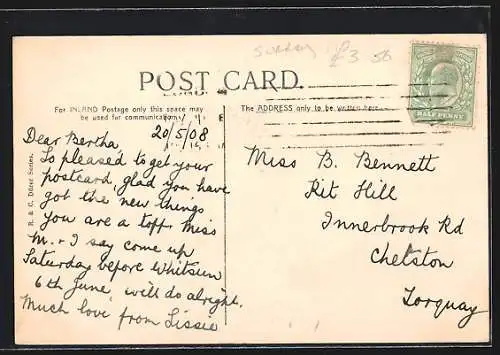 Surrey £3 56
POST CARD.
For INLAND Postage only this space may
be used for communication.
The ADDRESS only to be written here.
HALF PENNY
R. & C. Ditzer Series.
20/5/08
Dear Bertha
So pleased to get your
postcard, glad you have
got the new things
you are a toff Miss
M. & I say come up
Saturday before Whitsun
6th June, will do alright.
Much love from Lissie
Miss B. Bennett
Kit Hill
Innerbrook Rd
Chelston
Torquay